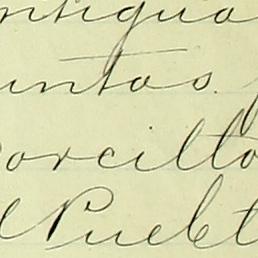 ntigua
untas.
orcillo
l Puebl